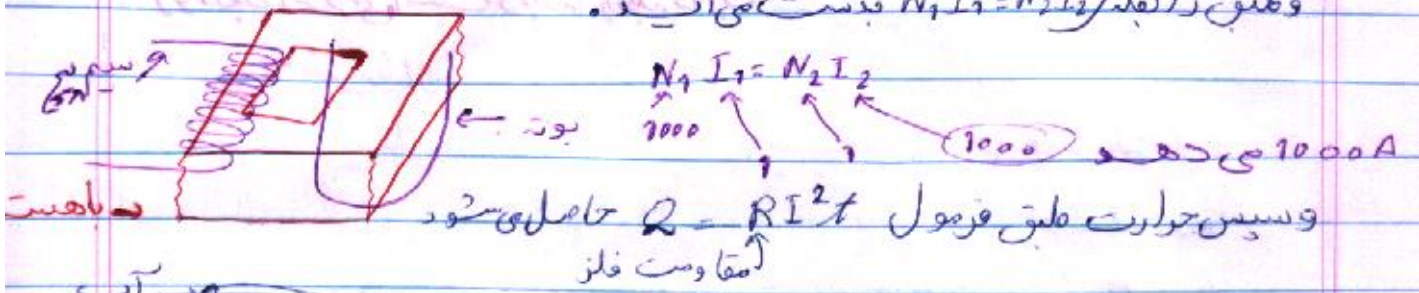 و طبق رابطه N1 I1 = N2 I2 بدست می‌آید.
سیم پیچ
N1 I1 = N2 I2
بوته
1000 1 1 1000 می دهد 1000A
با هسته
و سپس حرارت طبق فرمول Q = RI²t حاصل می شود
مقاومت فلز